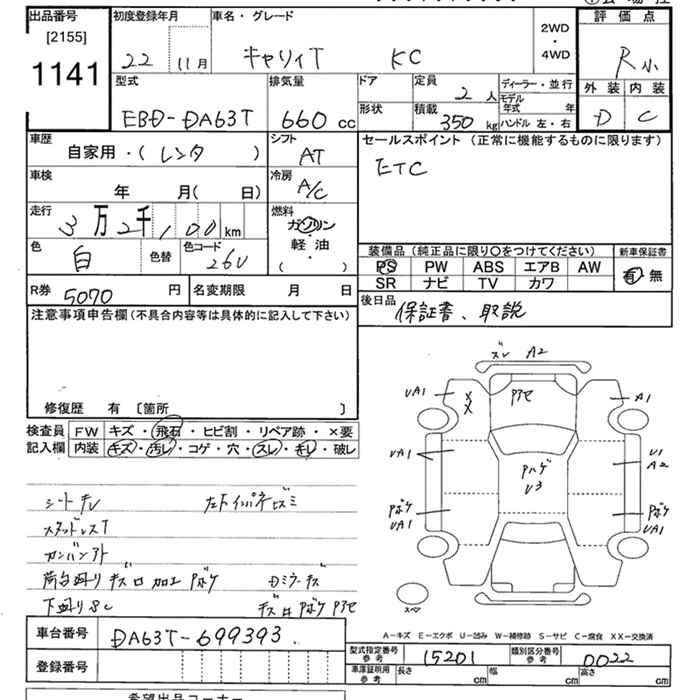 出品番号 初度登録年月 車名・グレード 2WD・4WD 評価点
[2155]
1141 22 11月 キャリイT KC R小
外装 内装
D C
型式 排気量 ドア 定員 2人 ディーラー・並行
EBD-DA63T 660 cc 形状 積載 350 kg モデル年式 年
ハンドル 左・右
車歴 シフト セールスポイント (正常に機能するものに限ります)
自家用・( レンタ ) AT ETC
車検 年 月( 日) 冷房 A/C
走行 3万2千,100 km 燃料 ガソリン・軽油・( )
色 白 色替 色コード 26U
装備品(純正品に限り〇をつけてください) 新車保証書
PS PW ABS エアB AW 有・無
SR ナビ TV カワ
R券 5070 円 名変期限 月 日 後日品 保証書、取説
注意事項申告欄(不具合内容等は具体的に記入して下さい)
修復歴 有 〔箇所 〕
検査員記入欄 FW キズ・飛石・ヒビ割・リペア跡・×要
内装 キズ・汚レ・コゲ・穴・スレ・キレ・破レ
シートキレ
スタッドレスT
荷台廻り キズ 加工 Pボケ
下廻りSC
ズレ A2
UA1 XX A1
UA1 Pハゲ U3 U1 A2
Pボケ UA1 Pボケ UA1
スペア
A-キズ E-エクボ U-凹み W-補修跡 S-サビ C-腐食 XX-交換済
車台番号 DA63T-699393
型式指定番号 参考 15201 類別区分番号 参考 0022
登録番号 車庫証明用 参考 長さ cm 幅 cm 高さ cm
希望出品コーナー